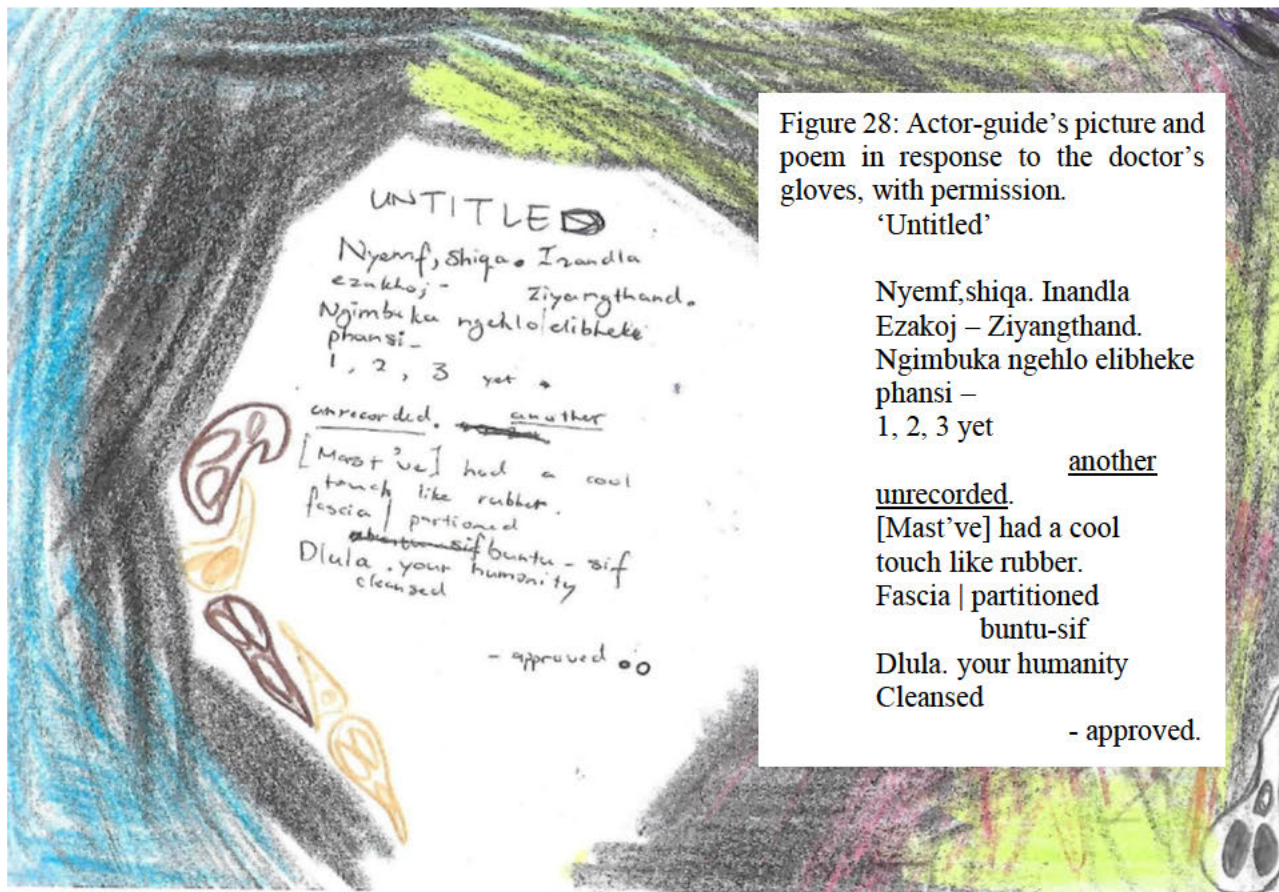 UNTITLED
Nyemf, shiqa. Izandla
ezakhoj- Ziyangthand.
Ngimbuka ngehlo|elibheke
phansi-
1, 2, 3 yet
unrecorded. another
[Mast've] had a cool
touch like rubber.
fascia | partioned
buntu - sif
Dlula . your humanity
cleansed
- approved
Figure 28: Actor-guide's picture and
poem in response to the doctor's
gloves, with permission.
'Untitled'
Nyemf,shiqa. Inandla
Ezakoj – Ziyangthand.
Ngimbuka ngehlo elibheke
phansi –
1, 2, 3 yet
another
unrecorded.
[Mast've] had a cool
touch like rubber.
Fascia | partitioned
buntu-sif
Dlula. your humanity
Cleansed
- approved.